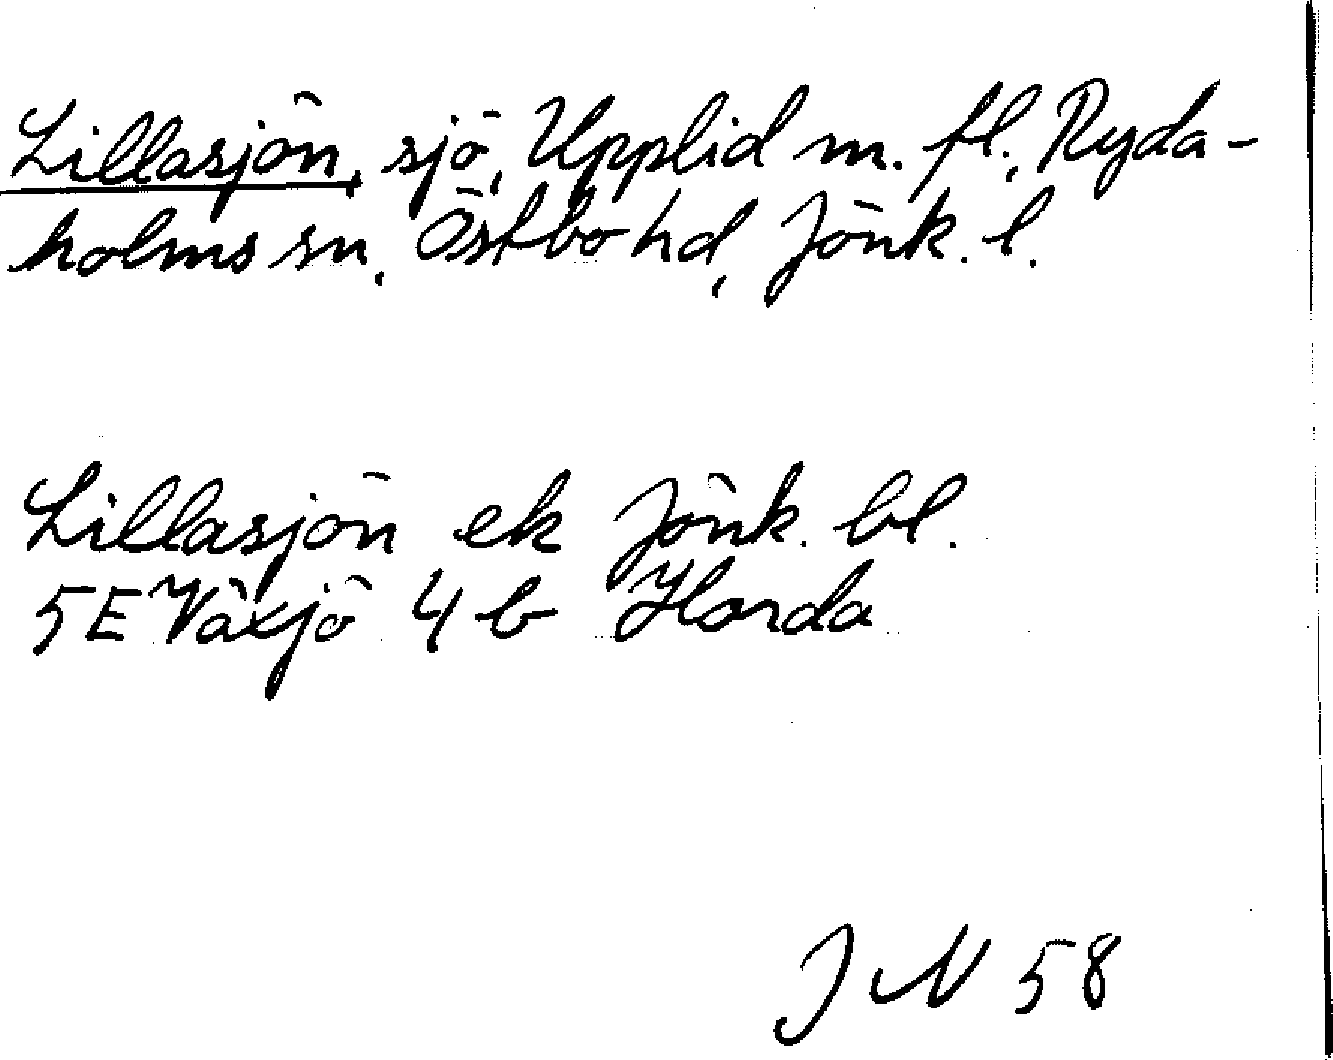 Lillasjön, sjö, Upplid m. fl., Ryda-
holms sn, Östbo hd, Jönk. l.
Lillasjön ek Jönk. bl.
5E Växjö 4 b Horda
J N 58